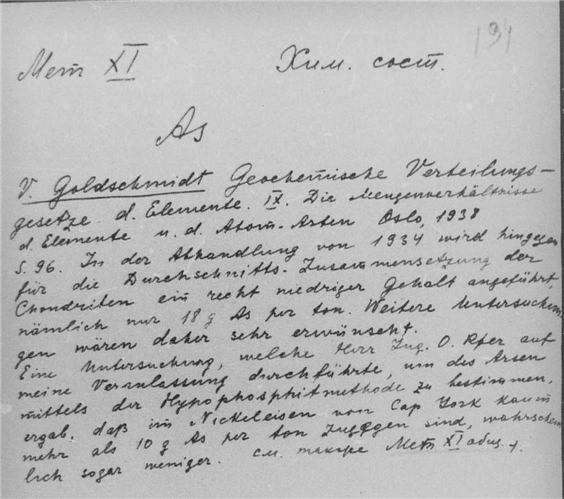 191
Мет XI Хим. сост.
As
V. Goldschmidt Geochemische Verteilungs-
gesetze d. Elemente. IX. Die Mengenverhältnisse
d. Elemente u. d. Atom-Arten Oslo, 1938
S. 96. In der Abhandlung von 1934 wird hingegen
für die Durchschnitts-Zusammensetzung der
Chondriten ein recht niedriger Gehalt angeführt,
nämlich nur 18 g As per ton. Weitere Untersuchun
gen wären daher sehr erwünscht.
Eine Untersuchung, welche Herr Ing. O. auf
meine Veranlassung durchführte, um des Arsen
mittels der Hypophosphitmethode zu bestimmen,
ergab, daß im Nickeleisen von Cap York kaum
mehr als 10 g As per ton zugegen sind, wahrschein
lich sogar weniger. см. также Мет XI